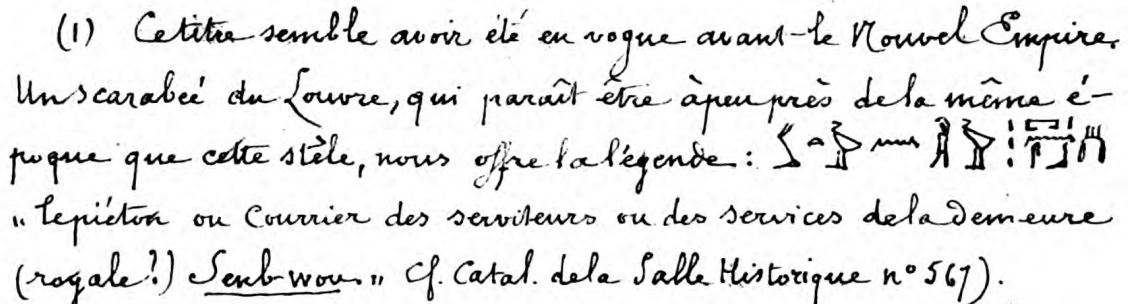 (1) Ce titre semble avoir été en vogue avant-le Nouvel Empire.
Un scarabeé du Louvre, qui paraît être à peu près de la même é-
poque que cette stèle, nous offre la légende :
„ le piéton ou Courrier des serviteurs ou des services de la Demeure
(royale?) Senb-wou. „ Cf. Catal. de la Salle Historique n° 567).